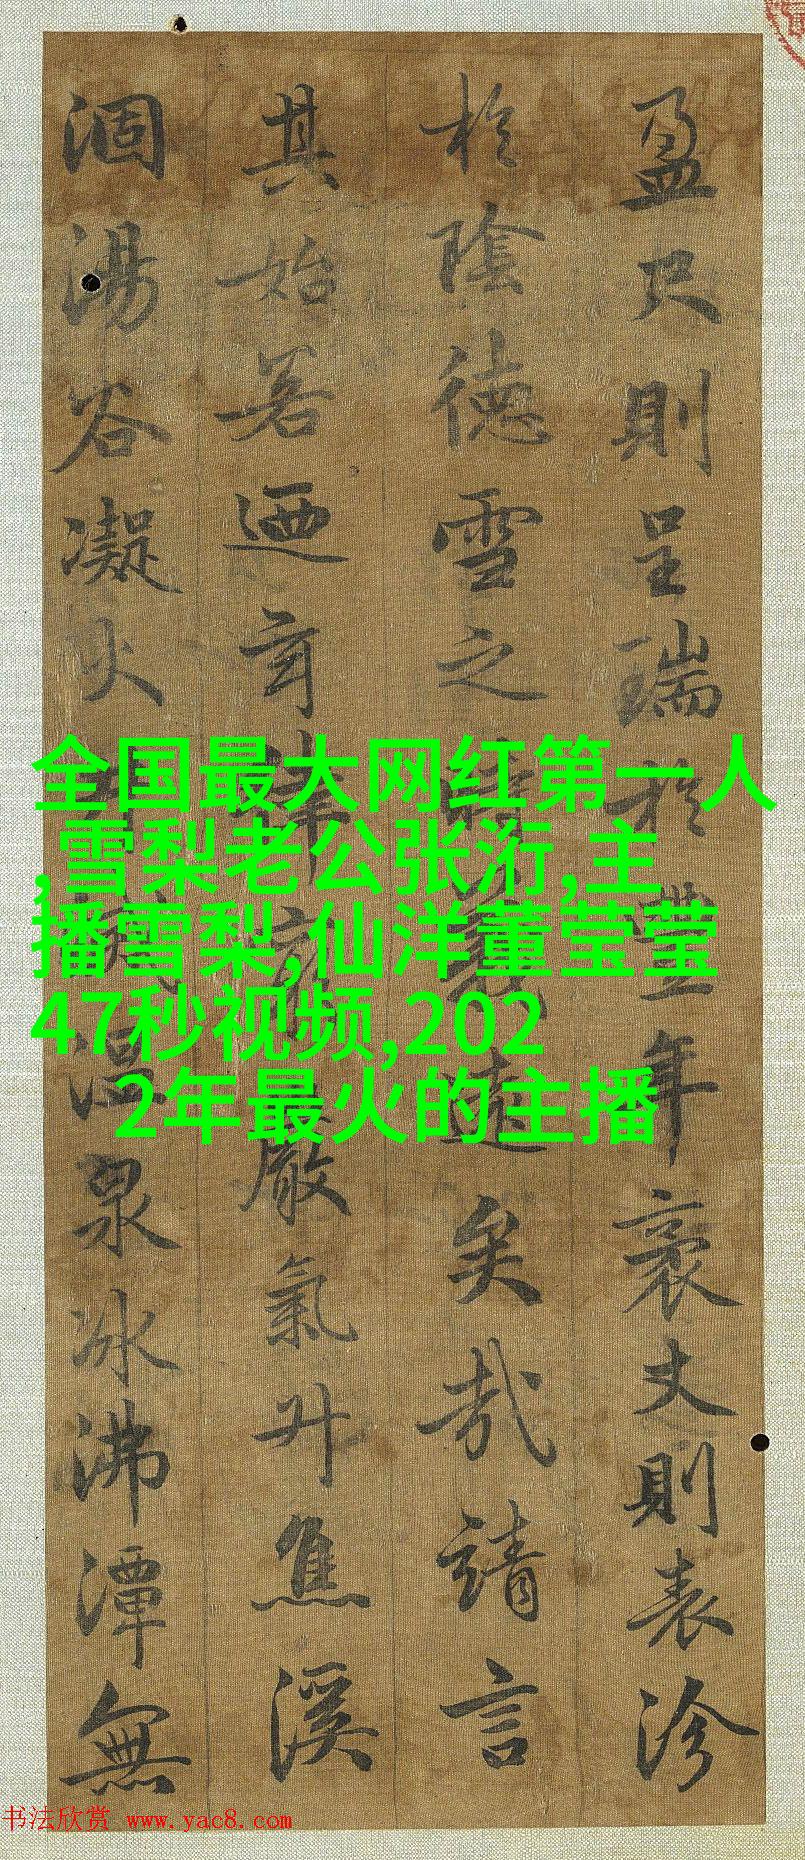 盈尺則呈瑞於豐年袤丈則表沴
於陰德雪之時義遠矣哉請言
其始若迺玄律窮嚴氣升焦溪
涸湯谷凝火井滅溫泉冰沸潭無
全国最大网红第一人
,雪梨老公张洐,主
播雪梨,仙洋董莹莹
47秒视频,202
2年最火的主播
书法欣赏 www.yac8.com